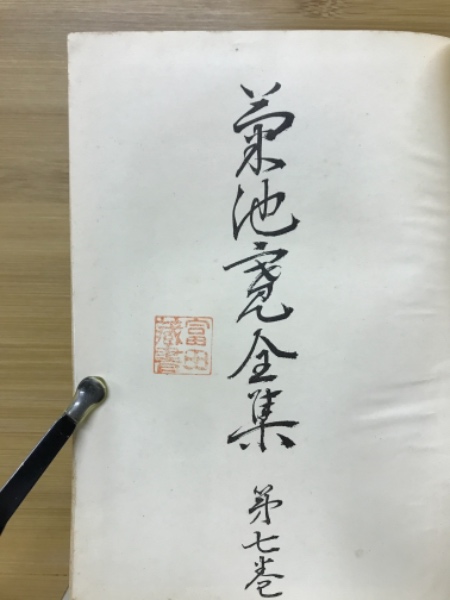 菊池寛全集
第七巻
富田
蔵書